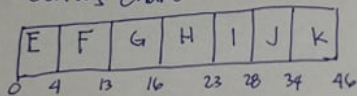 E F G H I J K
0 4 13 16 23 28 34 46